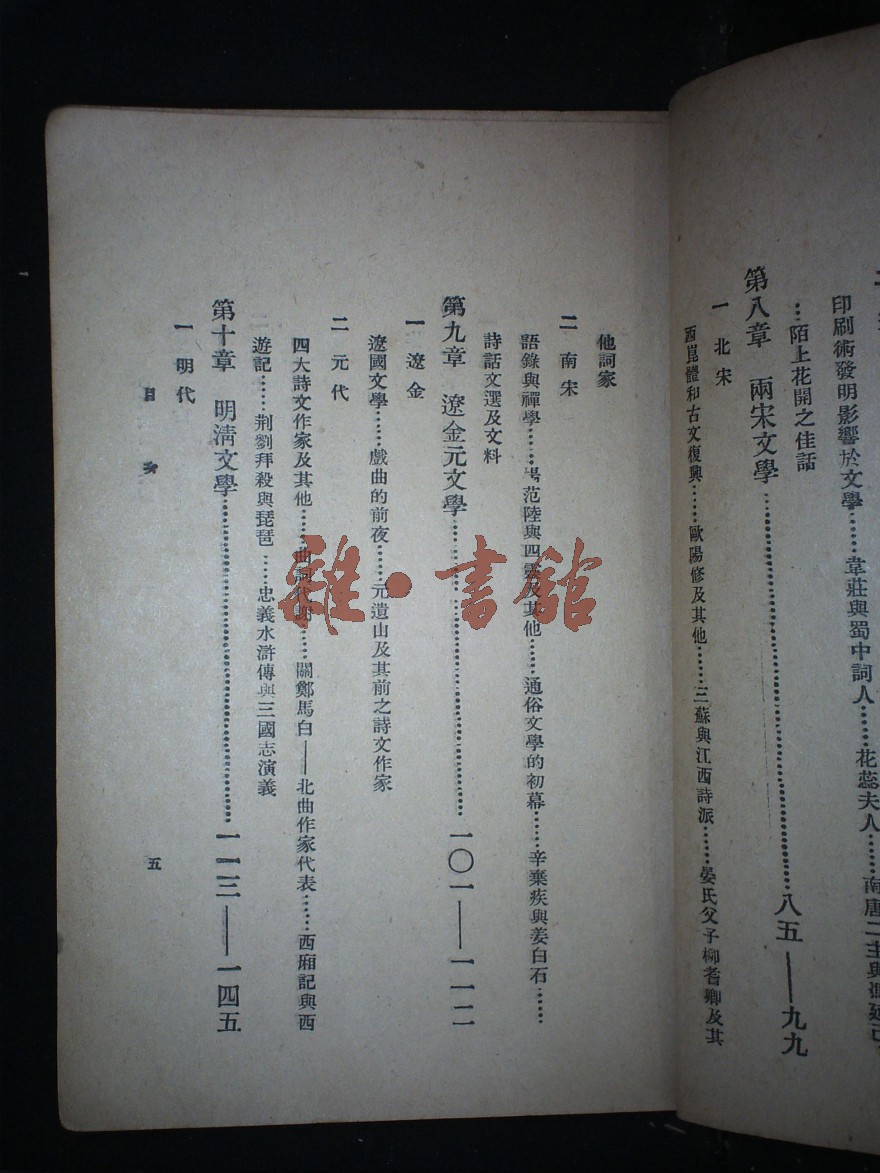 印刷術發明影響於文學……韋莊與蜀中詞人……花蕊夫人……南唐二主與馮延己
…陌上花開之佳話
第八章 兩宋文學……八五——九九
一 北宋
西崑體和古文復興……歐陽修及其他……三蘇與江西詩派……晏氏父子柳耆卿及其
他詞家
二 南宋
語錄與禪學……楊范陸與四靈及其他……通俗文學的初幕……辛棄疾與姜白石……
詩話文選及文料
第九章 遼金元文學……一〇一——一一二
一 遼金
遼國文學……戲曲的前夜……元遺山及其前之詩文作家
二 元代
四大詩文作家及其他……曲詞代謝……關鄭馬白——北曲作家代表……西廂記與西
遊記……荆劉拜殺與琵琶……忠義水滸傳與三國志演義
第十章 明清文學……一一三——一四五
一 明代
目 次
五
雜·書館